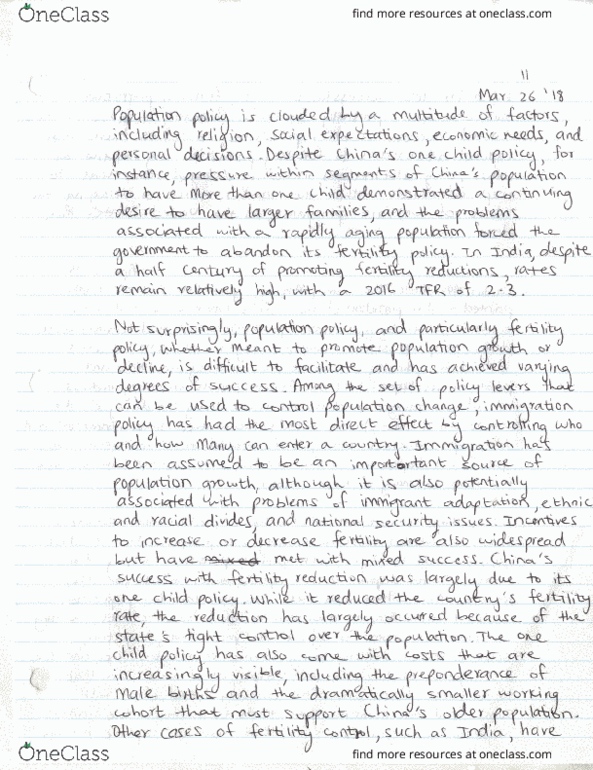 OneClass
find more resources at oneclass.com
11
Mar. 26 '18
Population policy is clouded by a multitude of factors,
including religion, social expectations, economic needs, and
personal decisions. Despite China's one child policy, for
instance, pressure within segments of China's population
to have more than one child demonstrated a continuing
desire to have larger families, and the problems
associated with a rapidly aging population forced the
government to abandon its fertility policy. In India, despite
a half century of promoting fertility reductions, rates
remain relatively high, with a 2016 TFR of 2.3.
Not surprisingly, population policy, and particularly fertility
policy, whether meant to promote population growth or
decline, is difficult to facilitate and has achieved varying
degrees of success. Among the set of policy levers that
can be used to control population change, immigration
policy has had the most direct effect by controlling who
and how many can enter a country. Immigration has
been assumed to be an important source of
population growth, although it is also potentially
associated with problems of immigrant adaptation, ethnic
and racial divides, and national security issues. Incentives
to increase or decrease fertility are also widespread
but have mixed met with mixed success. China's
success with fertility reduction was largely due to its
one child policy. While it reduced the country's fertility
rate, the reduction has largely occured because of the
state's tight control over the population. The one
child policy has also come with costs that are
increasingly visible, including the preponderance of
male births and the dramatically smaller working
cohort that must support China's older population.
Other cases of fertility control, such as India, have
OneClass
find more resources at oneclass.com